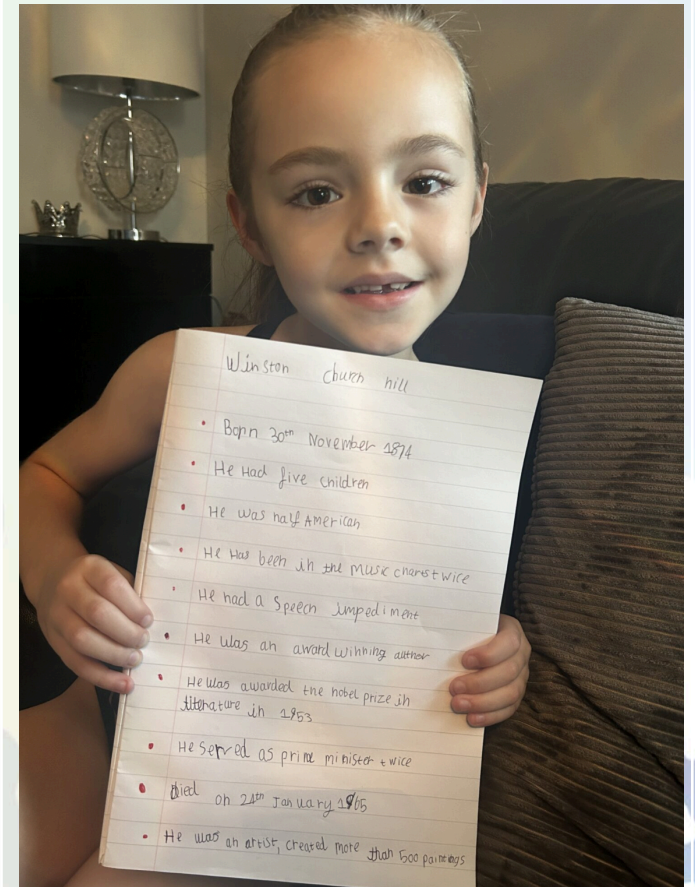 Winston church hill
• Born 30th November 1874
• He Had five children
• He was half American
• He Has been in the music charts twice
• He had a Speech impediment
• He was an award winning author
• He was awarded the nobel prize in
literature in 1953
• He Served as prime minister twice
• Died on 24th January 1965
• He was an artist, created more than 500 paintings